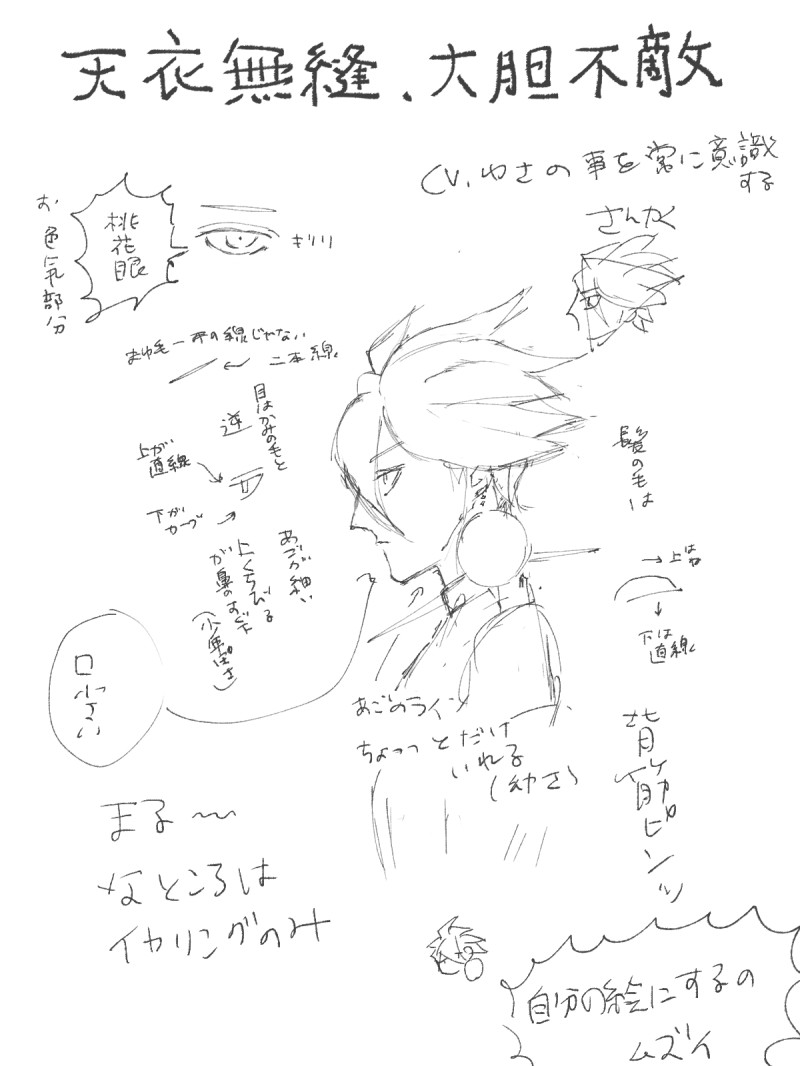 天衣無縫、大胆不敵
CV.ゆさの事を常に意識
する
さんかく
お色気部分
桃花眼
キリリ
まゆ毛一本の線じゃない
二本線
目はかみの毛と
逆
上が
直線
下が
カーブ
あごが細い
上くちびる
が鼻のすぐ下
(少年ぽさ)
髪の毛は
下は
直線
口小さい
あごのライン
ちょっっとだけ
いれる
背筋ピンッ
まる〜
なところは
イヤリングのみ
自分の絵にするの
ムズイ